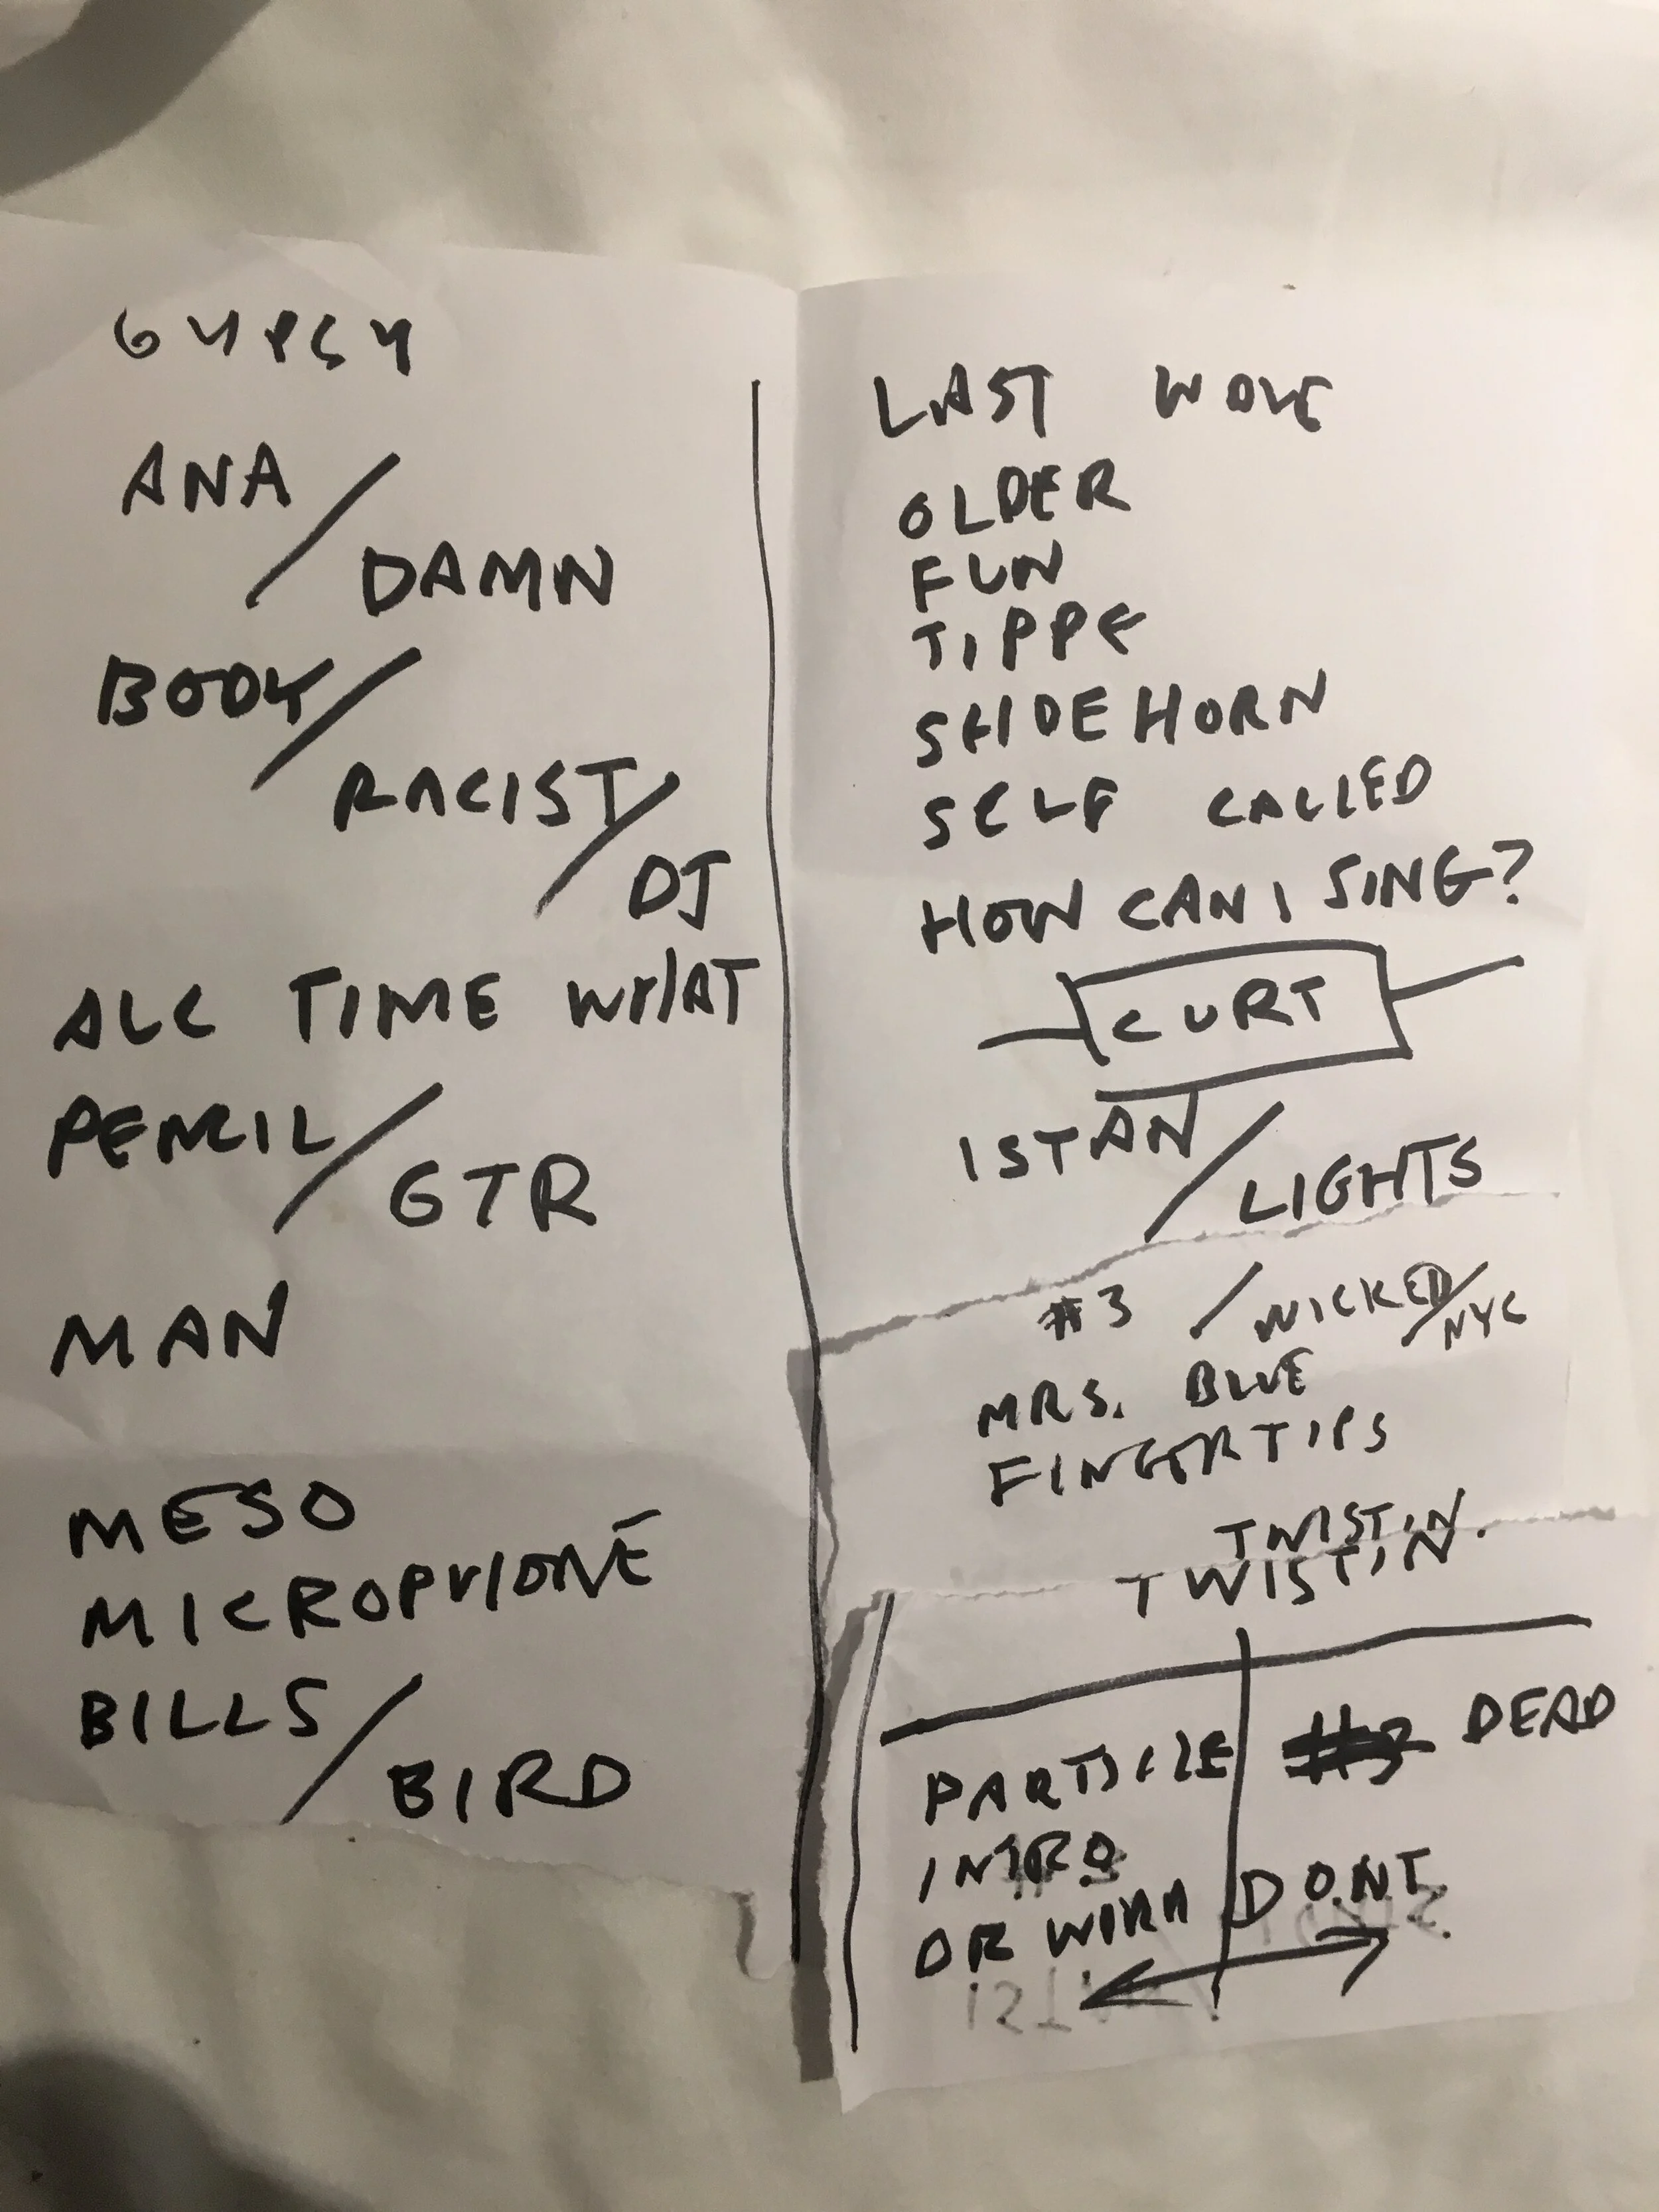 GYPSY
ANA /
DAMN
BODY /
RACIST /
DJ
ALL TIME WHAT
PENCIL /
GTR
MAN
MESO
MICROPHONE
BILLS /
BIRD
LAST WAVE
OLDER
FUN
TIPPE
SHIDEHORN
SELF CALLED
HOW CAN I SING?
CURT
ISTAN /
LIGHTS
#3 / WICKED / NYC
MRS. BLUE
FINGERTIPS
TWISTIN.
TWISTIN.
PARTICLE
INTRO
OR WIRA
#3 DEAD
DONT